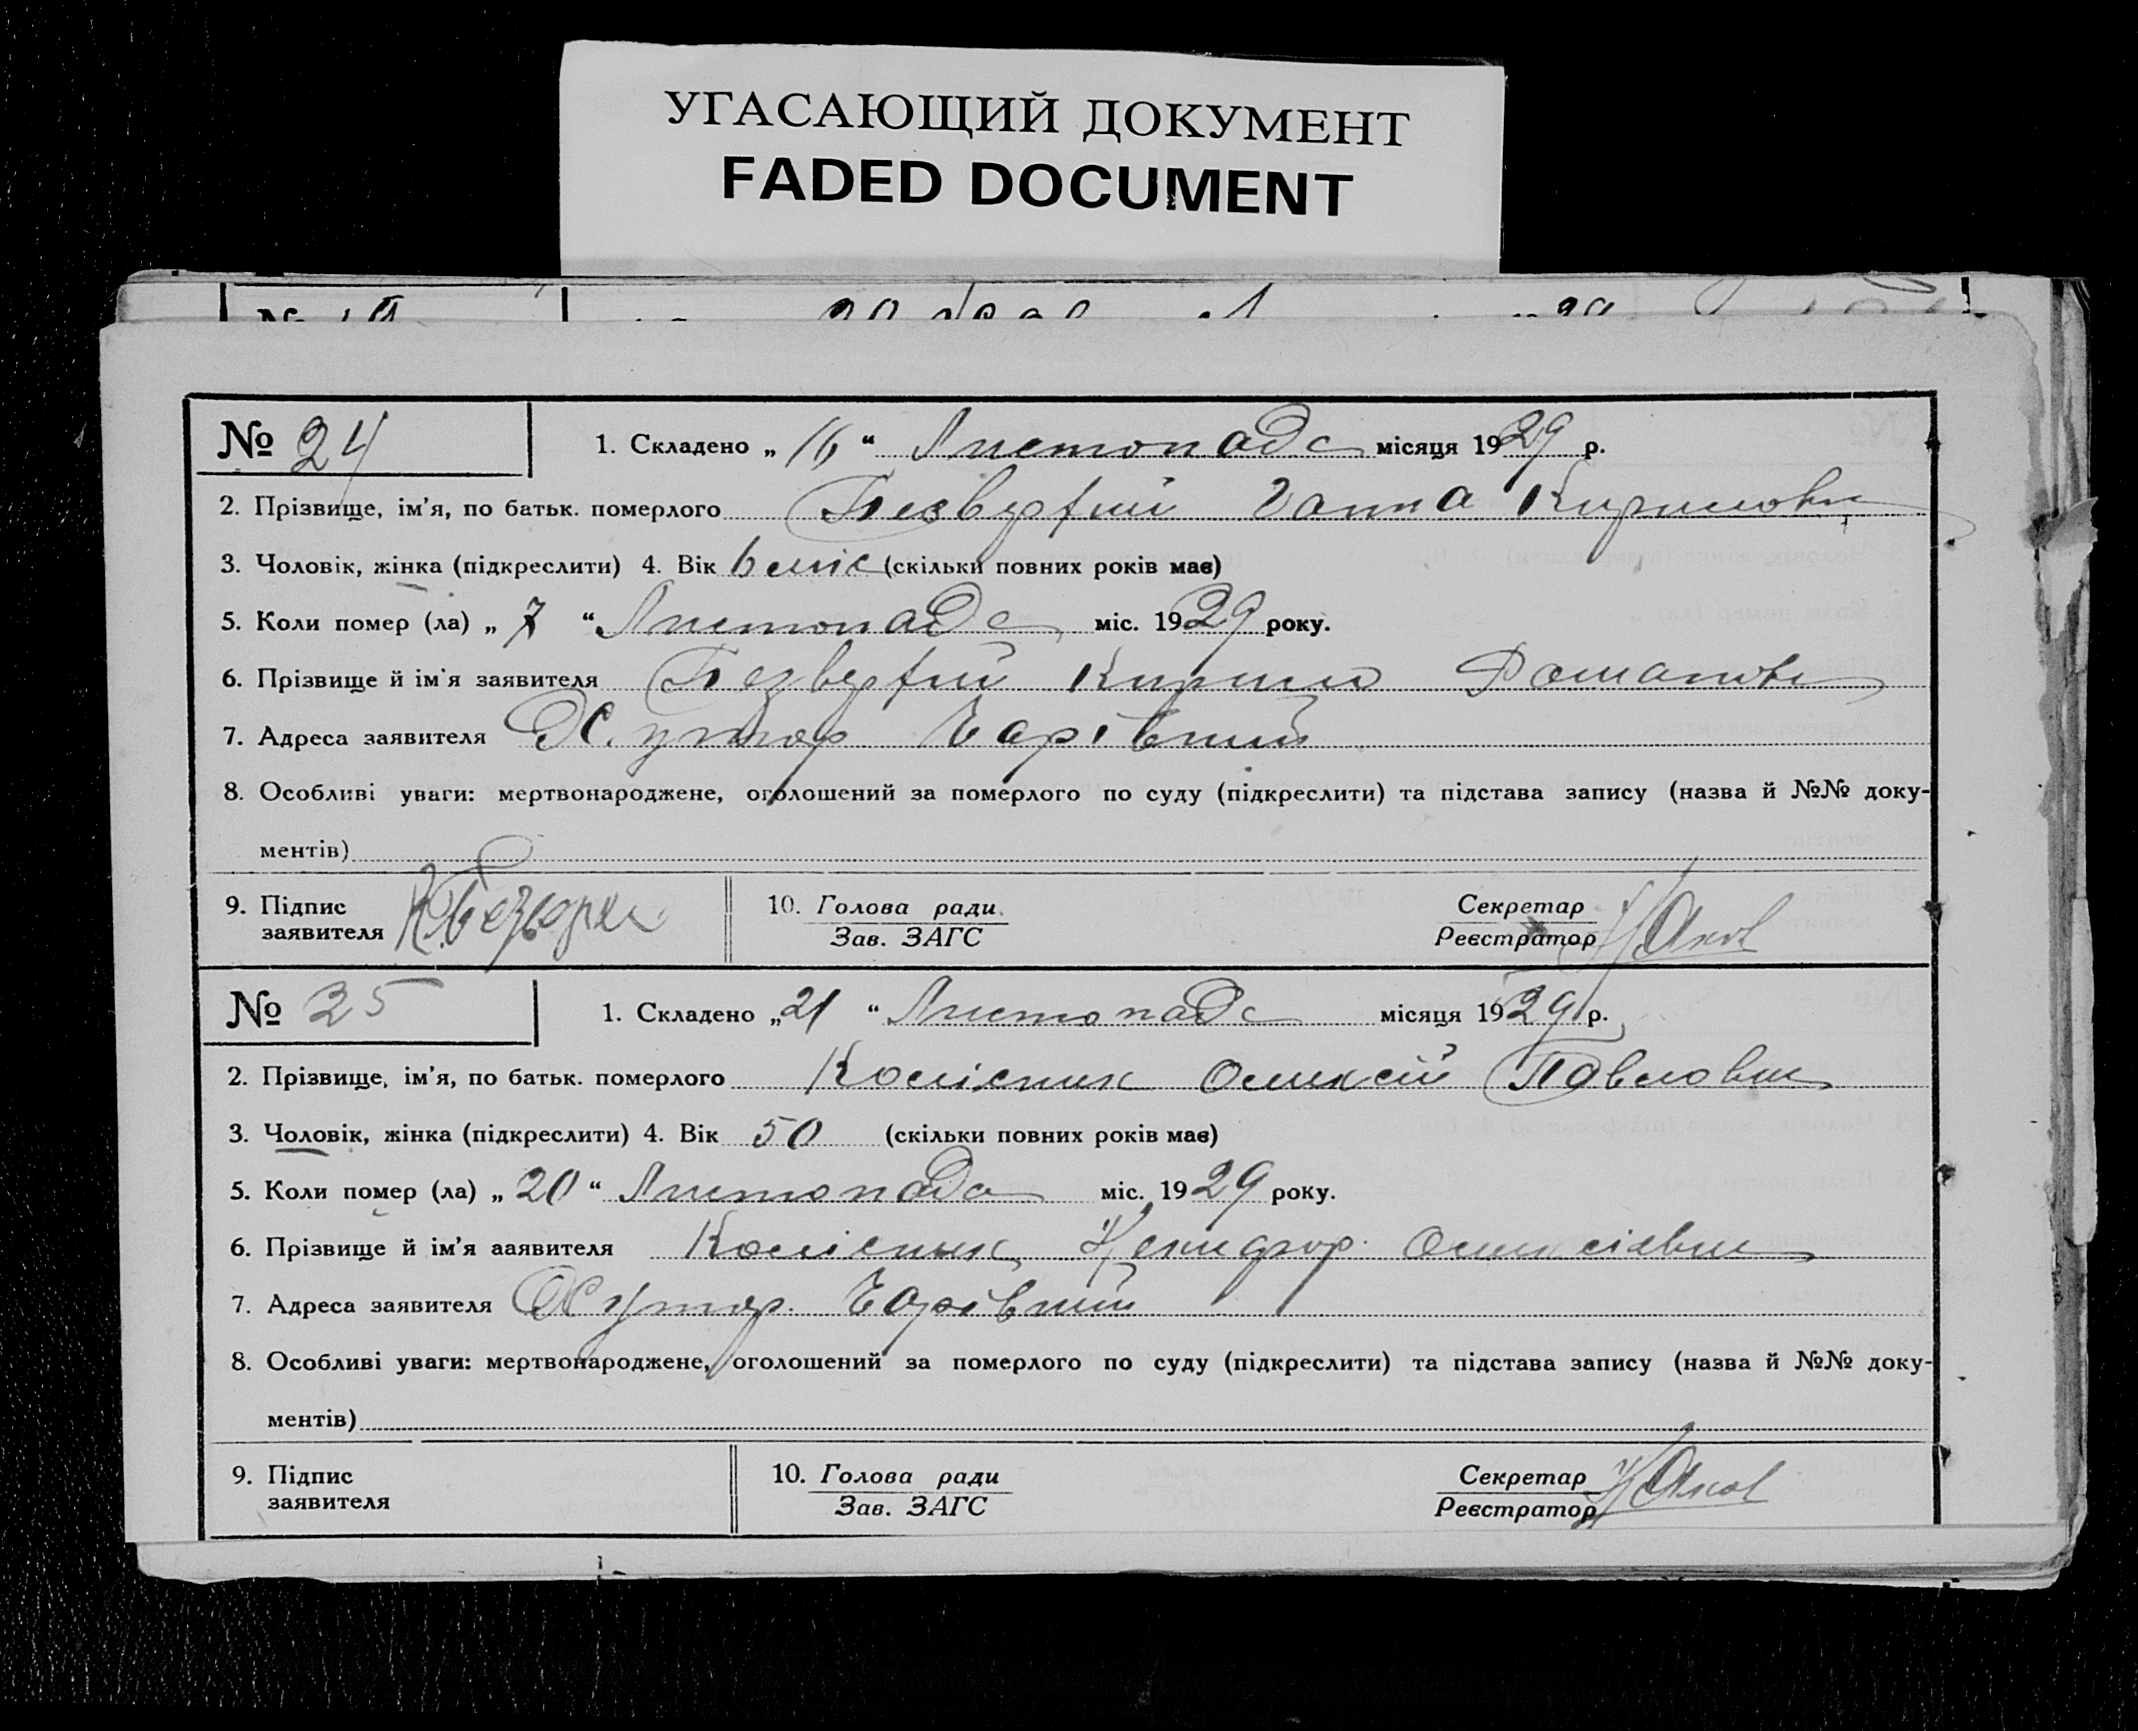 УГАСАЮЩИЙ ДОКУМЕНТ
FADED DOCUMENT
№ 24
1. Складено „ 16 “ Листопада місяця 1929 р.
2. Прізвище, ім'я, по батьк. померлого Безверхий Ганна Кириловн
3. Чоловік, жінка (підкреслити) 4. Вік 6 міс (скільки повних років має)
5. Коли помер (ла) „ 7 “ Листопада міс. 1929 року.
6. Прізвище й ім'я заявителя Безверхий Кирило Романови
7. Адреса заявителя Хутор
8. Особливі уваги: мертвонароджене, оголошений за померлого по суду (підкреслити) та підстава запису (назва й №№ доку-
ментів)
9. Підпис
заявителя
10. Голова ради
Зав. ЗАГС
Секретар
Реєстратор
№ 25
1. Складено „21 “ Листопада місяця 1929 р.
2. Прізвище, ім'я, по батьк. померлого Колісник Олексій Павлович
3. Чоловік, жінка (підкреслити) 4. Вік 50 (скільки повних років має)
5. Коли помер (ла) „ 20 “ Листопада міс. 1929 року.
6. Прізвище й ім'я аявителя Колісник Олексієвич
7. Адреса заявителя Хутор
8. Особливі уваги: мертвонароджене, оголошений за померлого по суду (підкреслити) та підстава запису (назва й №№ доку-
ментів)
9. Підпис
заявителя
10. Голова ради
Зав. ЗАГС
Секретар
Реєстратор